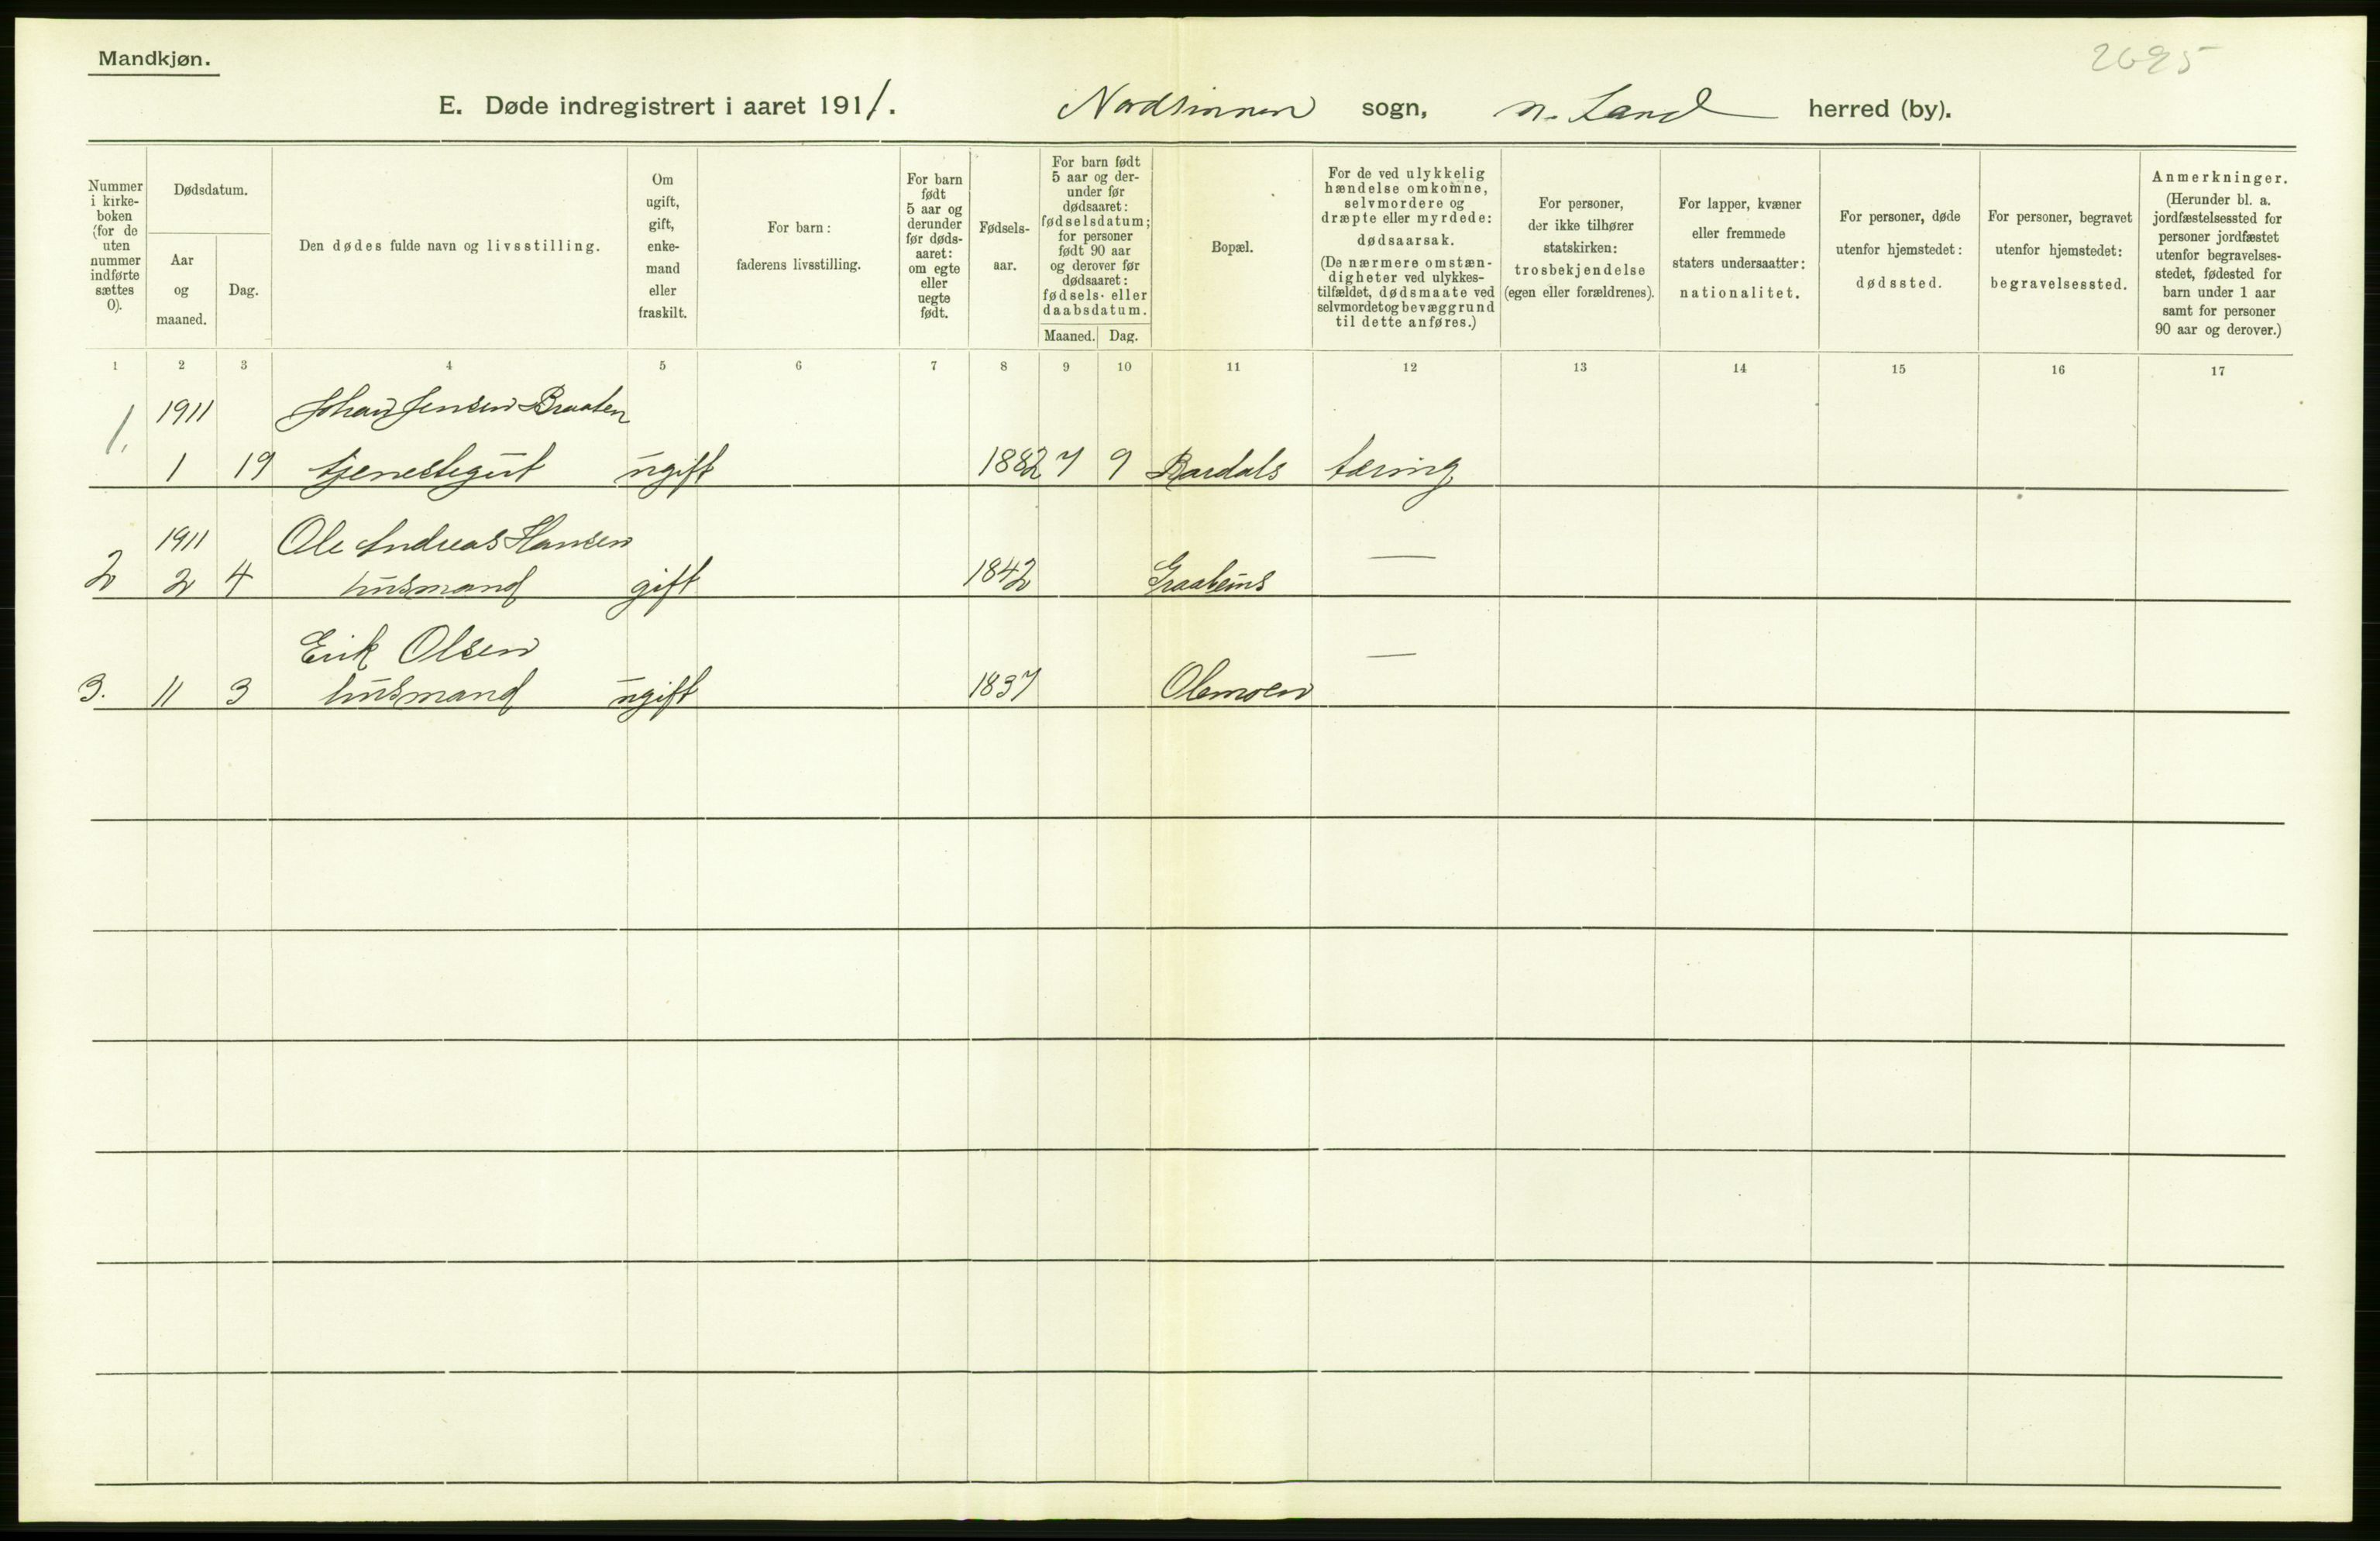 Mandkjøn.
2695
E. Døde indregistrert i aaret 1911. Nordsinnen sogn, N. Land herred (by).
Nummer i kirke-boken (for de uten nummer indførte sættes 0).
Dødsdatum.
Aar og maaned.
Dag.
Den dødes fulde navn og livsstilling.
Om ugift, gift, enke-mand eller fraskilt.
For barn: faderens livsstilling.
For barn født 5 aar og derunder før døds-aaret: om egte eller uegte født.
Fødsels-aar.
For barn født 5 aar og der-under før dødsaaret: fødselsdatum; for personer født 90 aar og derover før dødsaaret: fødsels- eller daabsdatum.
Maaned. Dag.
Bopæl.
For de ved ulykkelig hændelse omkomne, selvmordere og dræpte eller myrdede: dødsaarsak. (De nærmere omstæn-digheter ved ulykkes-tilfældet, dødsmaate ved selvmordet og bevæggrund til dette anføres.)
For personer, der ikke tilhører statskirken: trosbekjendelse (egen eller forældrenes).
For lapper, kvæner eller fremmede staters undersaatter: nationalitet.
For personer, døde utenfor hjemstedet: dødssted.
For personer, begravet utenfor hjemstedet: begravelsessted.
Anmerkninger. (Herunder bl. a. jordfæstelsessted for personer jordfæstet utenfor begravelses-stedet, fødested for barn under 1 aar samt for personer 90 aar og derover.)
1 2 3 4 5 6 7 8 9 10 11 12 13 14 15 16 17
1911 Johan Jensen Braaten
1. 1 19 tjenestegut ugift 1882 7 9 Bardals tæring
1911 Ole Andreas Hansen —
2 2 4 husmand gift 1842
Erik Olsen —
3. 11 3 husmand ugift 1837 Olemoen